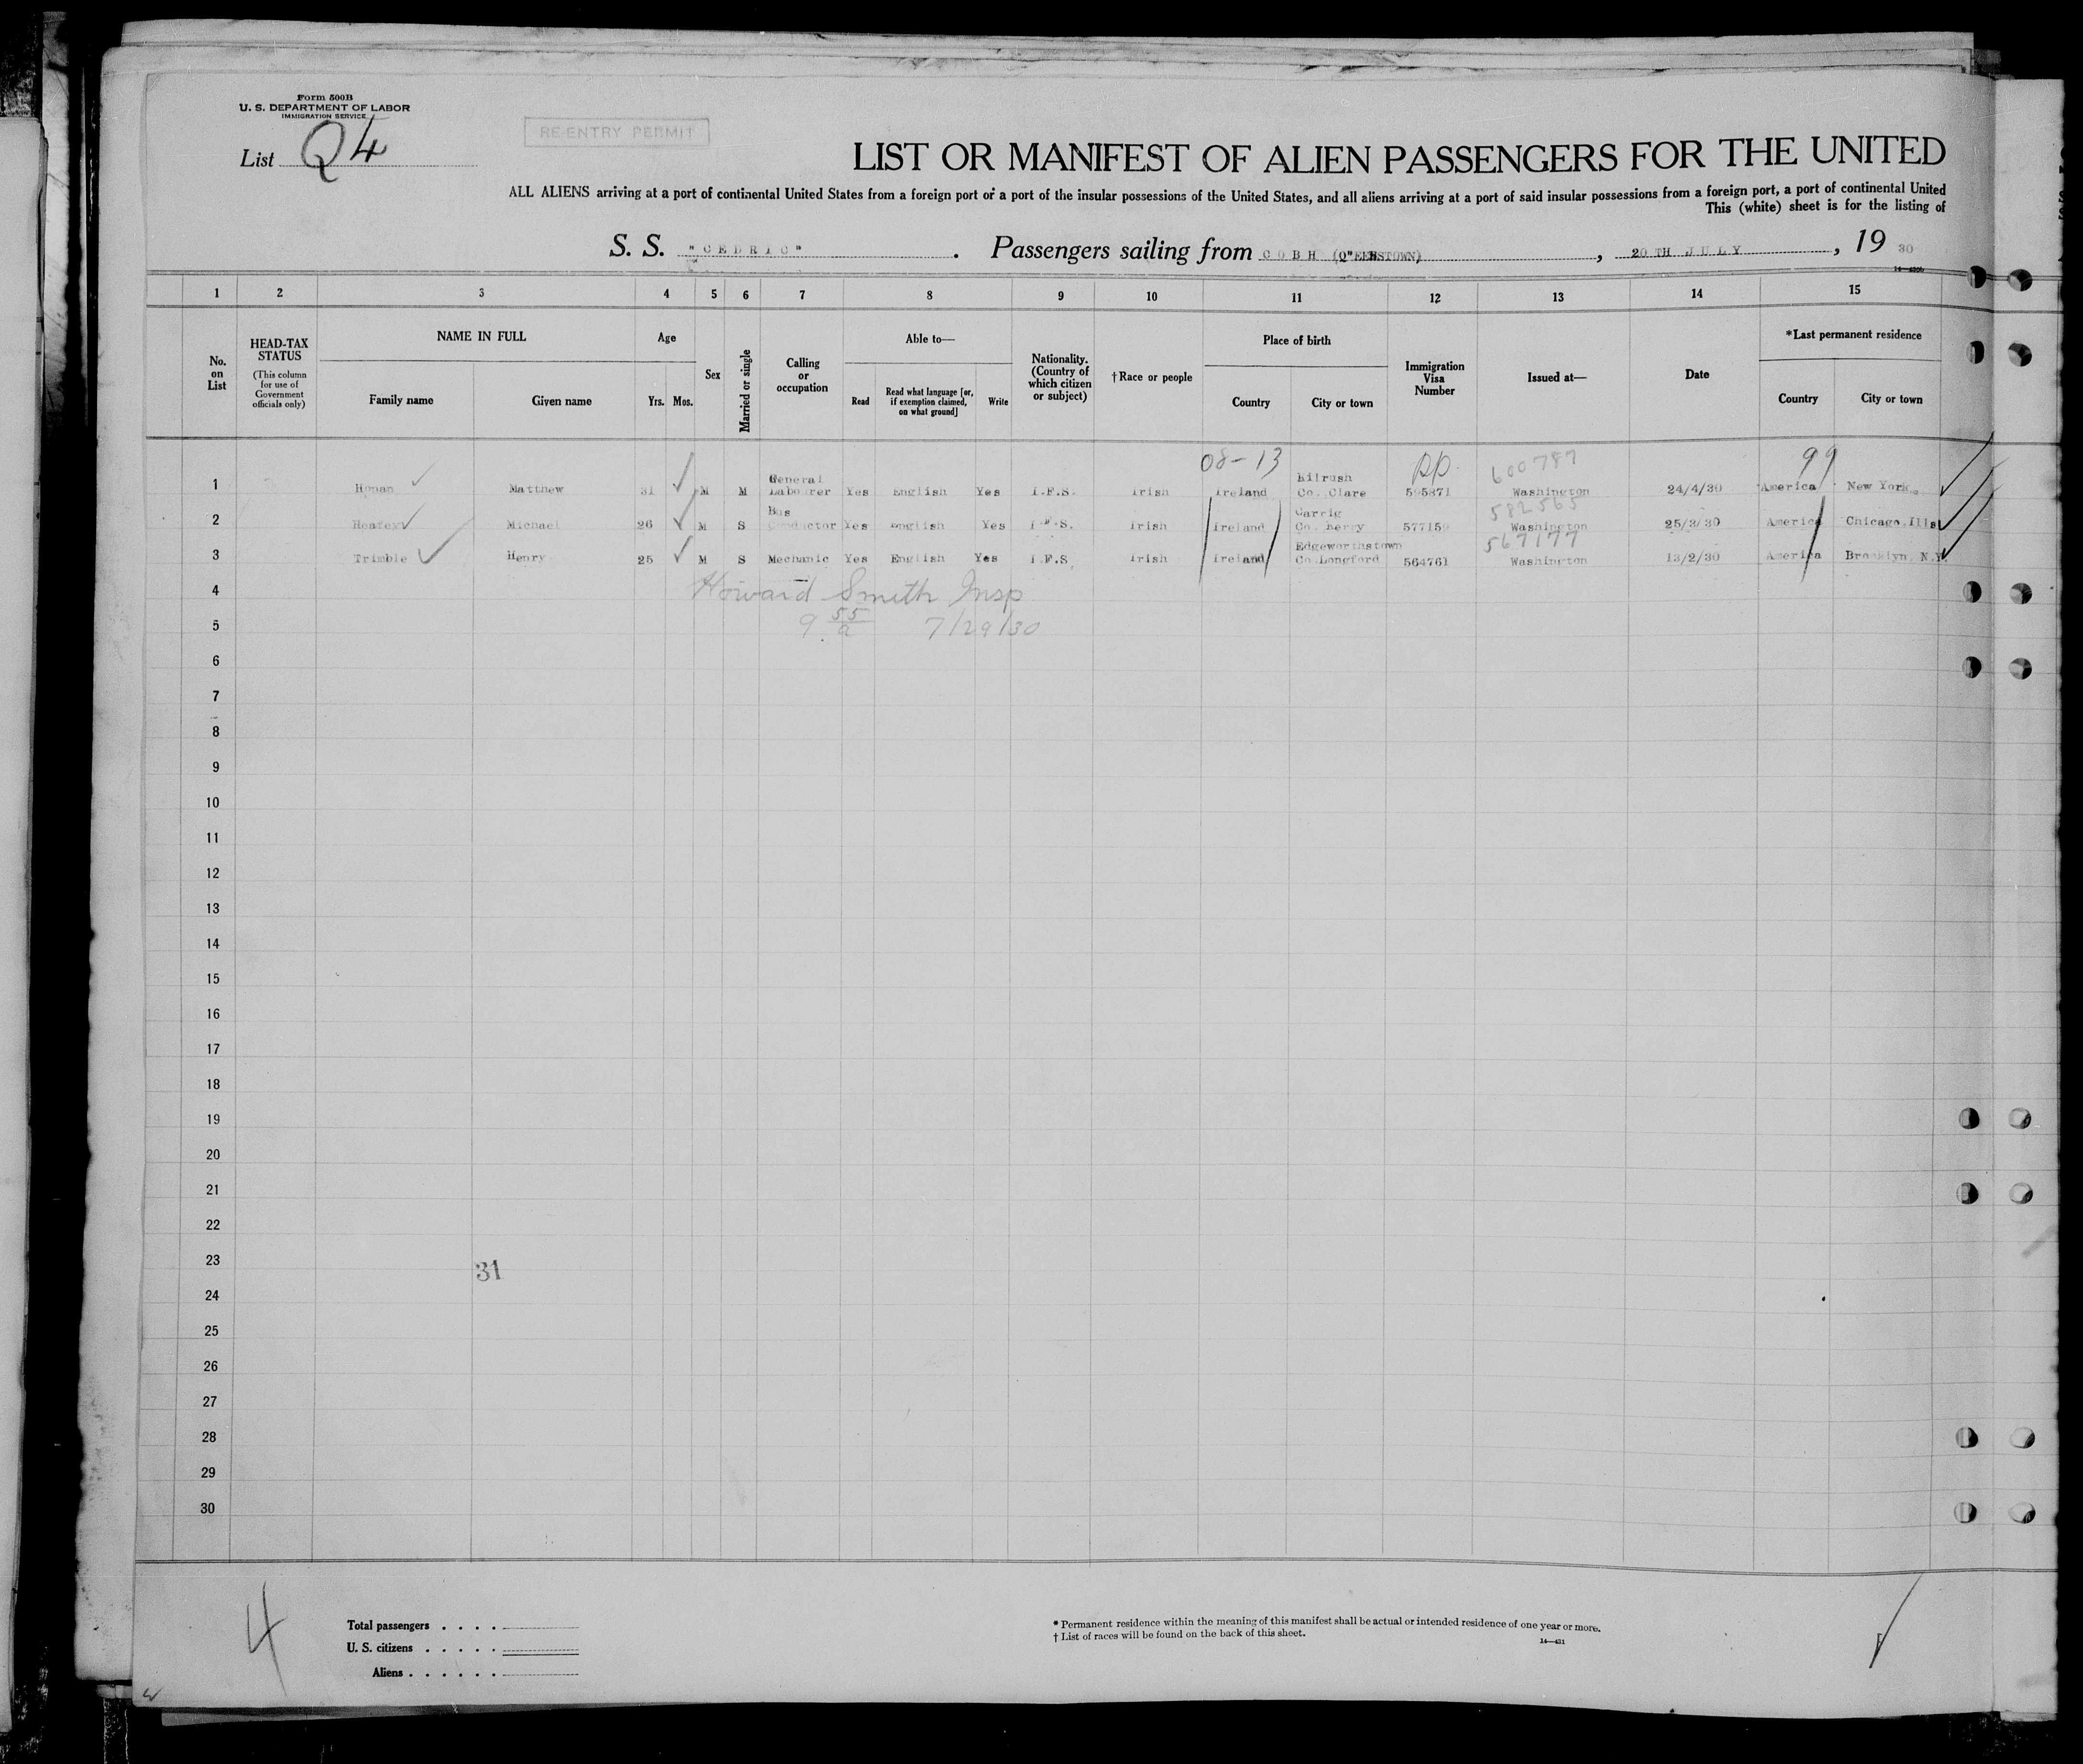 Form 500B
U. S. DEPARTMENT OF LABOR
IMMIGRATION SERVICE
List Q4
RE-ENTRY PERMIT
LIST OR MANIFEST OF ALIEN PASSENGERS FOR THE UNITED
ALL ALIENS arriving at a port of continental United States from a foreign port or a port of the insular possessions of the United States, and all aliens arriving at a port of said insular possessions from a foreign port, a port of continental United
This (white) sheet is for the listing of
S. S. "CEDRIC". Passengers sailing from COBH (Q"EENSTOWN), 20TH JULY, 1930
1 2 3 4 5 6 7 8 9 10 11 12 13 14 15
No. on List
HEAD-TAX STATUS (This column for use of Government officials only)
NAME IN FULL
Family name Given name
Age
Yrs. Mos.
Sex
Married or single
Calling or occupation
Able to—
Read Read what language [or, if exemption claimed, on what ground] Write
Nationality. (Country of which citizen or subject)
†Race or people
Place of birth
Country City or town
Immigration Visa Number
Issued at—
Date
*Last permanent residence
Country City or town
08-13 PP. 600787 99
General Kilrush
1 Honan Matthew 31 M M Labourer Yes English Yes I.F.S. Irish Ireland Co. Clare 595371 Washington 24/4/30 America New York.
Bus Carrig 582565
2 Heafey Michael 26 M S Conductor Yes English Yes I.F.S. Irish Ireland Co. Kerry 577159 Washington 25/3/30 America Chicago, Ills
Edgeworthstown 567177
3 Trimble Henry 25 M S Mechanic Yes English Yes I.F.S. Irish Ireland Co.Longford 564761 Washington 13/2/30 America Brooklyn, N.Y.
4 Howard Smith Insp
5 9 55/a 7/29/30
6
7
8
9
10
11
12
13
14
15
16
17
18
19
20
21
22
23
31
24
25
26
27
28
29
30
4
Total passengers . . . .
U. S. citizens . . . . .
Aliens . . . . . .
* Permanent residence within the meaning of this manifest shall be actual or intended residence of one year or more.
† List of races will be found on the back of this sheet.
14—431